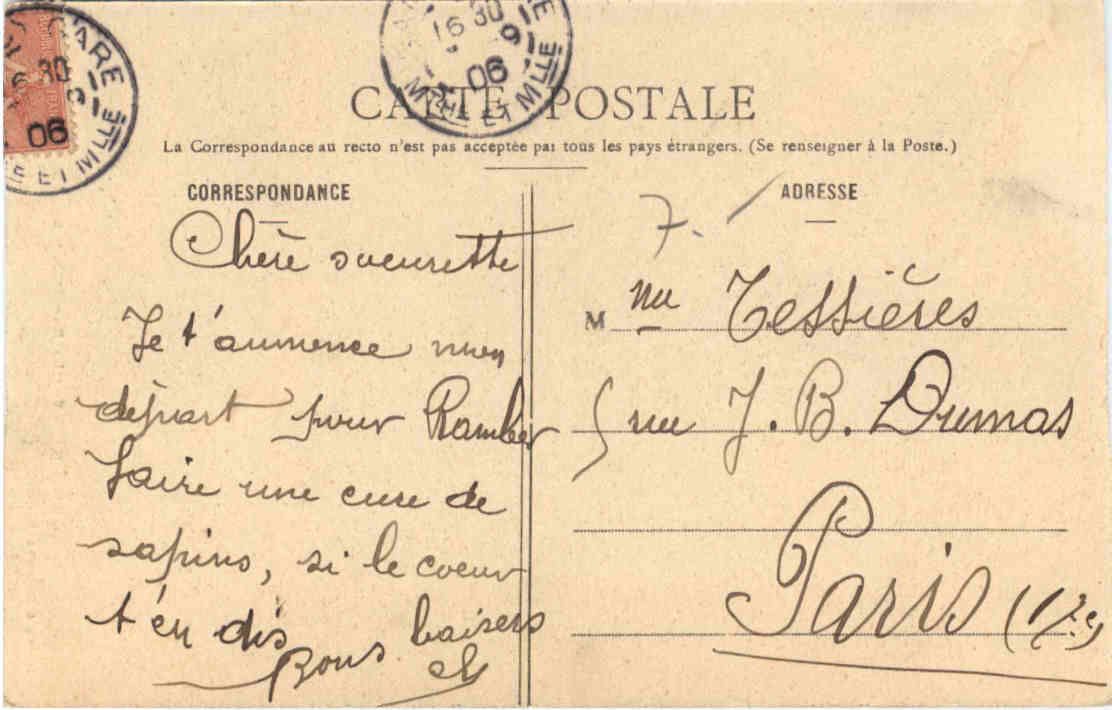 GARE
16 30
9
06
ET MLLE
16 30
9
06
MCHE ET MLLE
CARTE POSTALE
La Correspondance au recto n'est pas acceptée par tous les pays étrangers. (Se renseigner à la Poste.)
CORRESPONDANCE
Chère soeurette
Je t'annonce mon
départ pour Ramber
faire une cure de
sapins, si le coeur
t'en dis
Bons baisers
ADRESSE
7.
M Tessières
5 rue J. B. Dumas
Paris (17e)